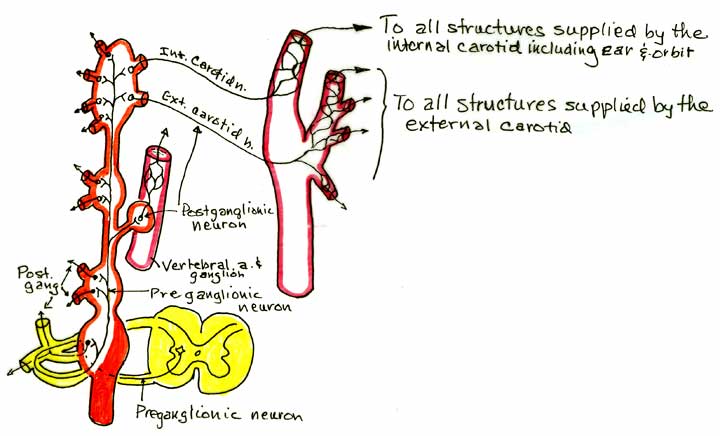 To all structures supplied by the
internal carotid including ear & orbit
Int. carotid n.
Ext. carotid n.
To all structures supplied by the
external carotid
Postganglionic
neuron
Vertebral a. &
ganglion
Post.
gang
Preganglionic
neuron
Preganglionic neuron